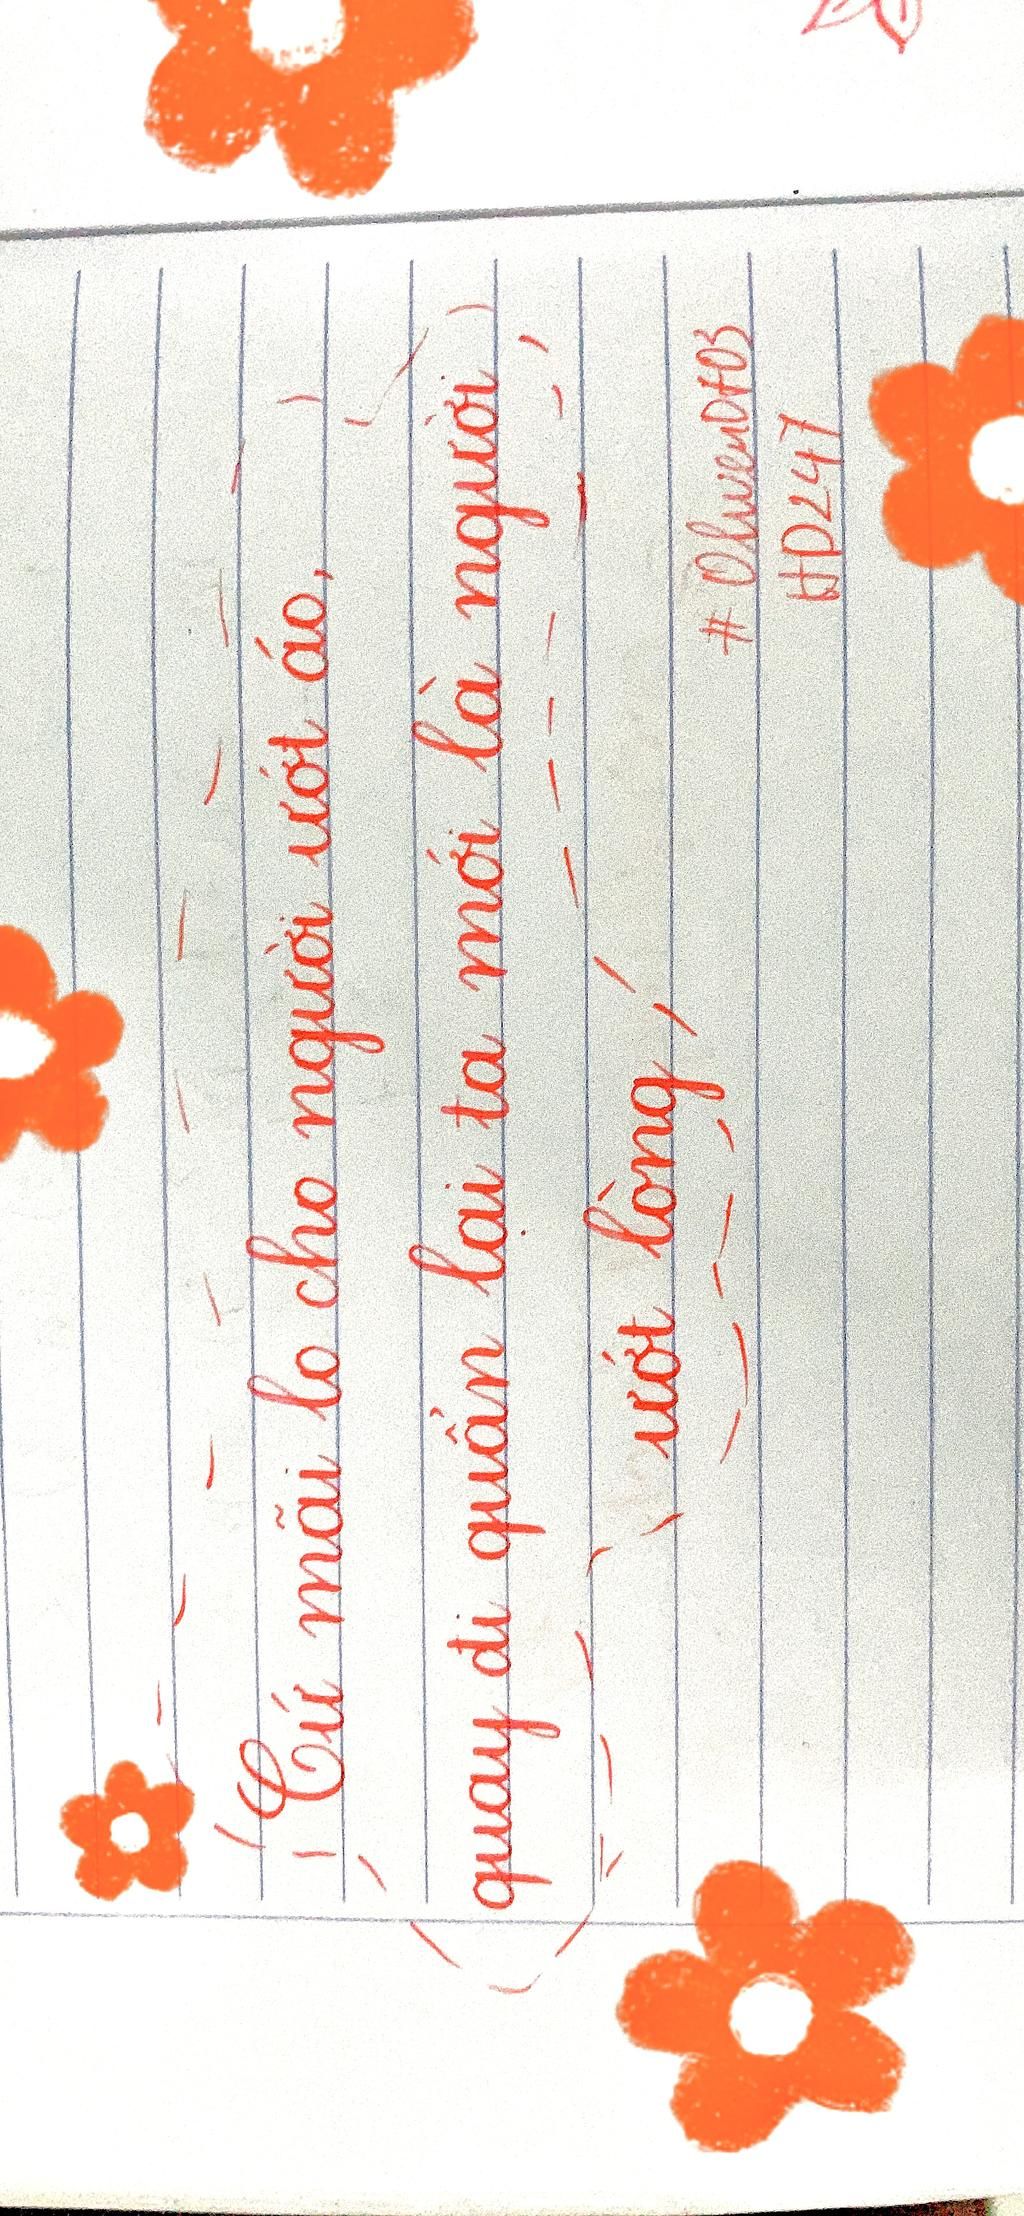 Cứ mãi lo cho người ướt áo,
quay đi quẩn lại ta mới là người
ướt lòng
# OhwenDH03
HD247